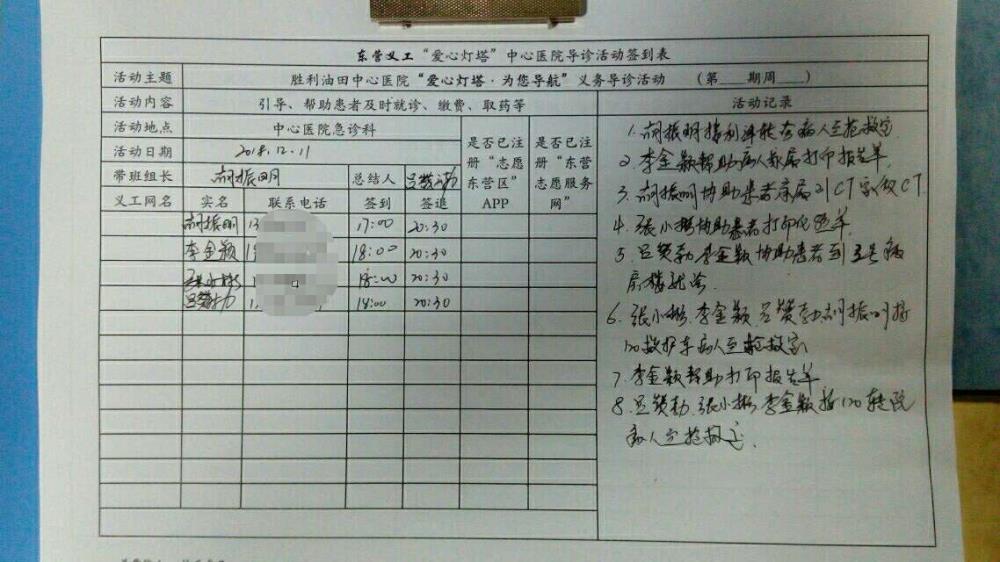 东营义工“爱心灯塔”中心医院导诊活动签到表
活动主题 胜利油田中心医院“爱心灯塔·为您导航”义务导诊活动 (第___期周___)
活动内容 引导、帮助患者及时就诊、缴费、取药等 活动记录
活动地点 中心医院急诊科 是否已注册“志愿东营区”APP 是否已注册“东营志愿服务网”
活动日期 2018.12.11
带班组长 胡振明 总结人 吕赞勋
义工网名 实名 联系电话 签到 签退
胡振明 13 17:00 20:30
李金颖 18:00 20:30
张小彬 18:00 20:30
吕赞勋 18:00 20:30
1. 胡振明接利津转杏病人至抢救室
2. 李金颖帮助病人家属打印报告单
3. 胡振明协助患者家属到CT室做CT
4. 张小彬协助患者打印化验单
5. 吕赞勋 李金颖协助患者到五号病
房楼就诊
6. 张小彬、李金颖、吕赞勋、胡振明接
120救护车病人至抢救室
7. 李金颖帮助打印报告单
8. 吕赞勋、张小彬、李金颖接120转院
病人至抢救室.